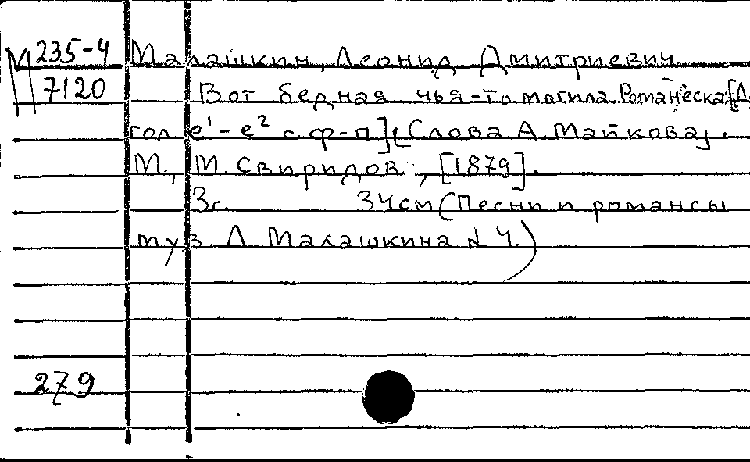 М 235-4 Малашкин, Леонид Дмитриевич
7120 Вот бедная чья-то могила. Романеска [Д
гол e¹-e² с ф-п] [Слова А Майкова].
М., М. Свиридов, [1879].
3с. 34см (Песни и романсы
муз Л Малашкина № 4.)
279